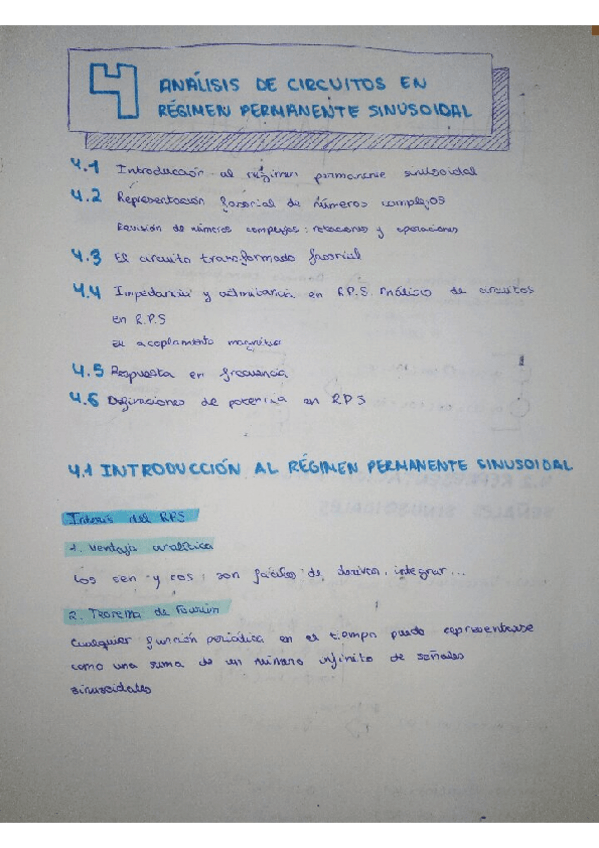 4 ANÁLISIS DE CIRCUITOS EN
RÉGIMEN PERMANENTE SINUSOIDAL
4.1 Introducción al régimen permanente sinusoidal
4.2 Representación fasorial de números complejos
Revisión de números complejos: rotaciones y operaciones
4.3 El circuito transformado fasorial
4.4 Impedancia y admitancia en R.P.S. Análisis de circuitos
en R.P.S
El acoplamiento magnético
4.5 Respuesta en frecuencia
4.6 Definiciones de potencia en RPS
4.1 INTRODUCCIÓN AL RÉGIMEN PERMANENTE SINUSOIDAL
Interés del RPS
1. Ventaja analítica
Los sen y cos son fáciles de derivar, integrar...
2. Teorema de Fourier
Cualquier función periódica en el tiempo puede representarse
como una suma de un número infinito de señales
sinusoidales